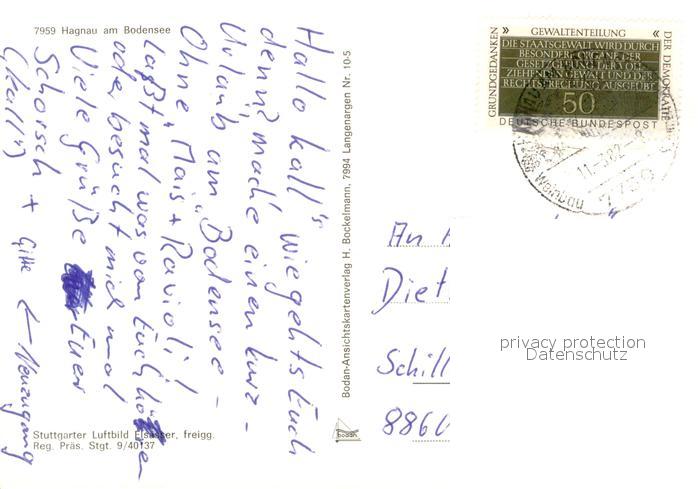 7959 Hagnau am Bodensee
Hallo kall's wiegehts Euch
denn? mache einen kurz-
Urlaub am "Bodensee-
Ohne "Mais + Ravioli!
Laßt mal was von Euch hören
oder besucht mich mal
Viele Grüße Euer
Schorsch + Gitte ← Neuzugang
(kall's)
Stuttgarter Luftbild Elsässer, freigg.
Reg. Präs. Stgt. 9/40137
Bodan-Ansichtskartenverlag H. Bockelmann, 7994 Langenargen Nr. 10-5
bodan
GRUNDGEDANKEN
» GEWALTENTEILUNG «
DER DEMOKRATIE
DIE STAATSGEWALT WIRD DURCH
BESONDERE ORGANE DER
GESETZGEBUNG, DER VOLL-
ZIEHENDEN GEWALT UND DER
RECHTSPRECHUNG AUSGEÜBT
50
DEUTSCHE BUNDESPOST
An
Diet
Schill
8860
privacy protection
Datenschutz